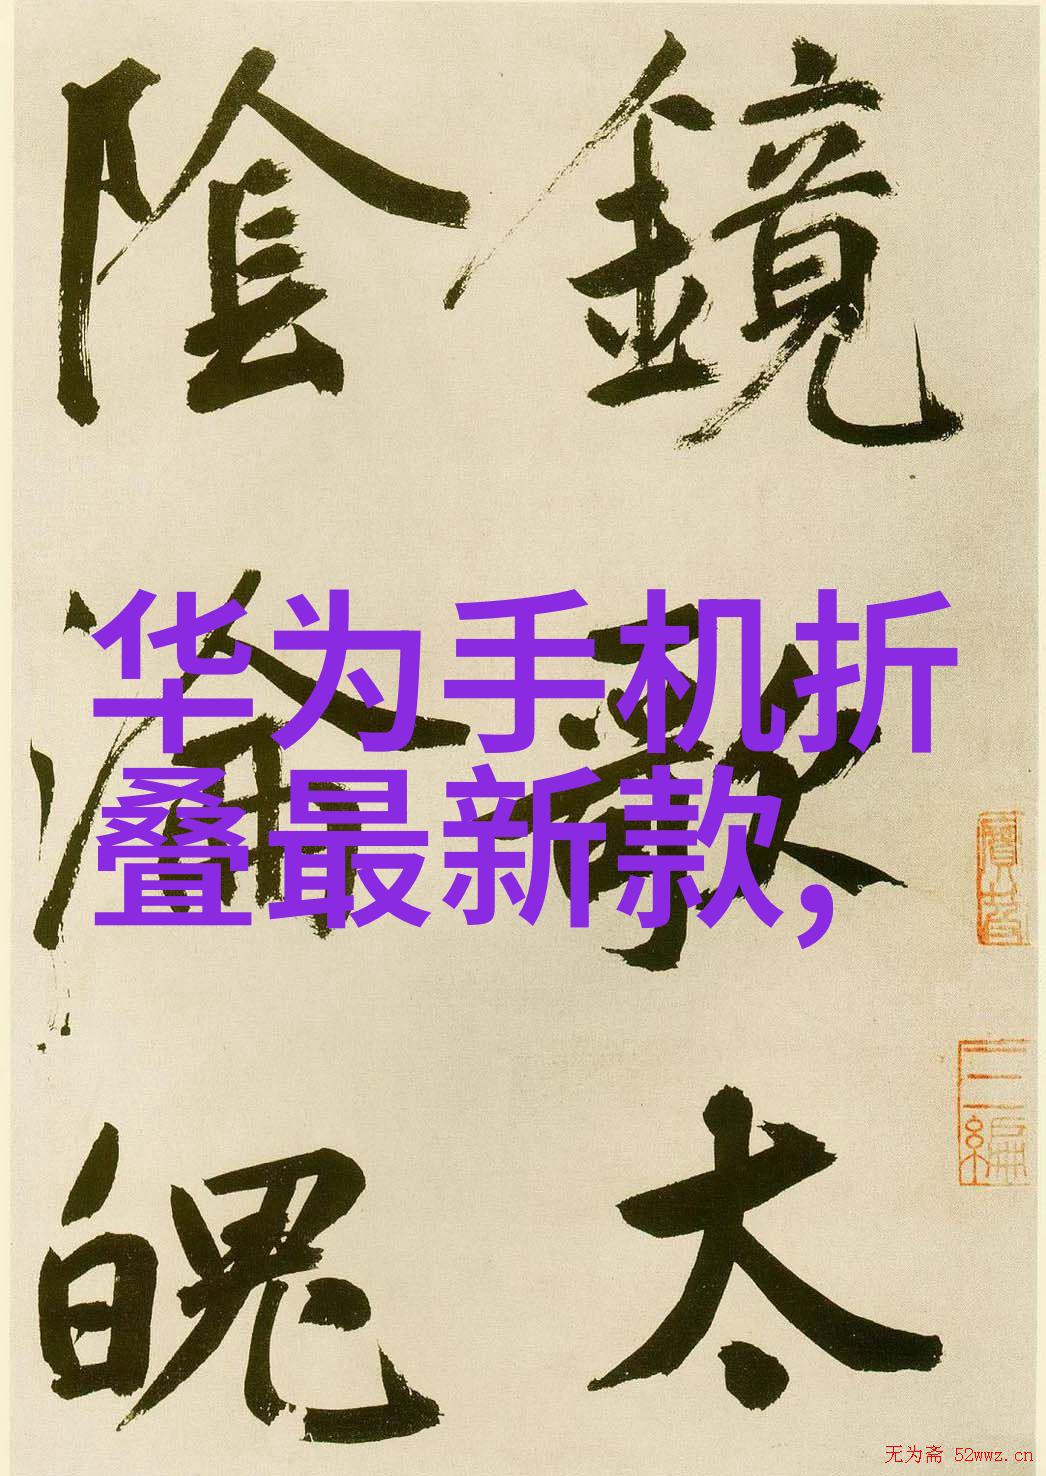 鏡
太
陰淪魄
华为手机折
叠最新款,
三編
无为斋 52wwz.cn